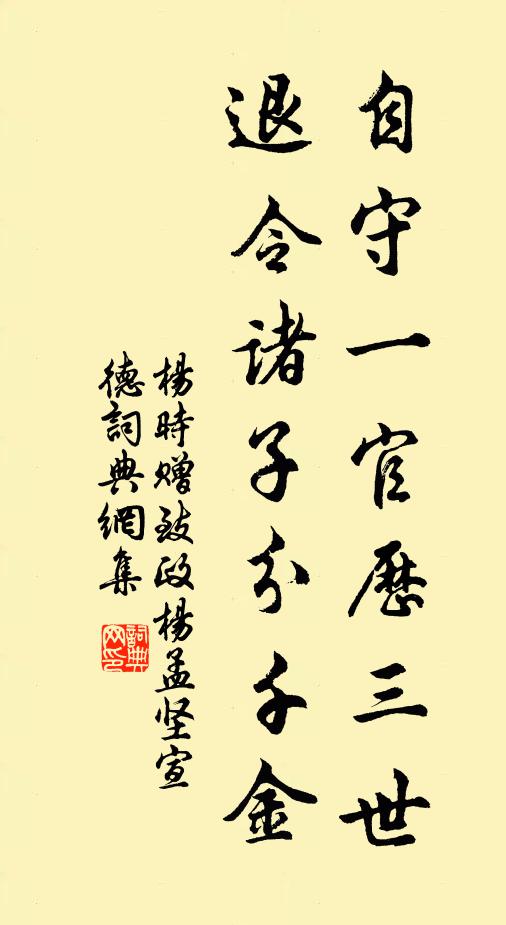 自守一官歷三世
退令諸子分千金
楊時贈致政楊孟坚宣
德詞典網集
詞典
网印